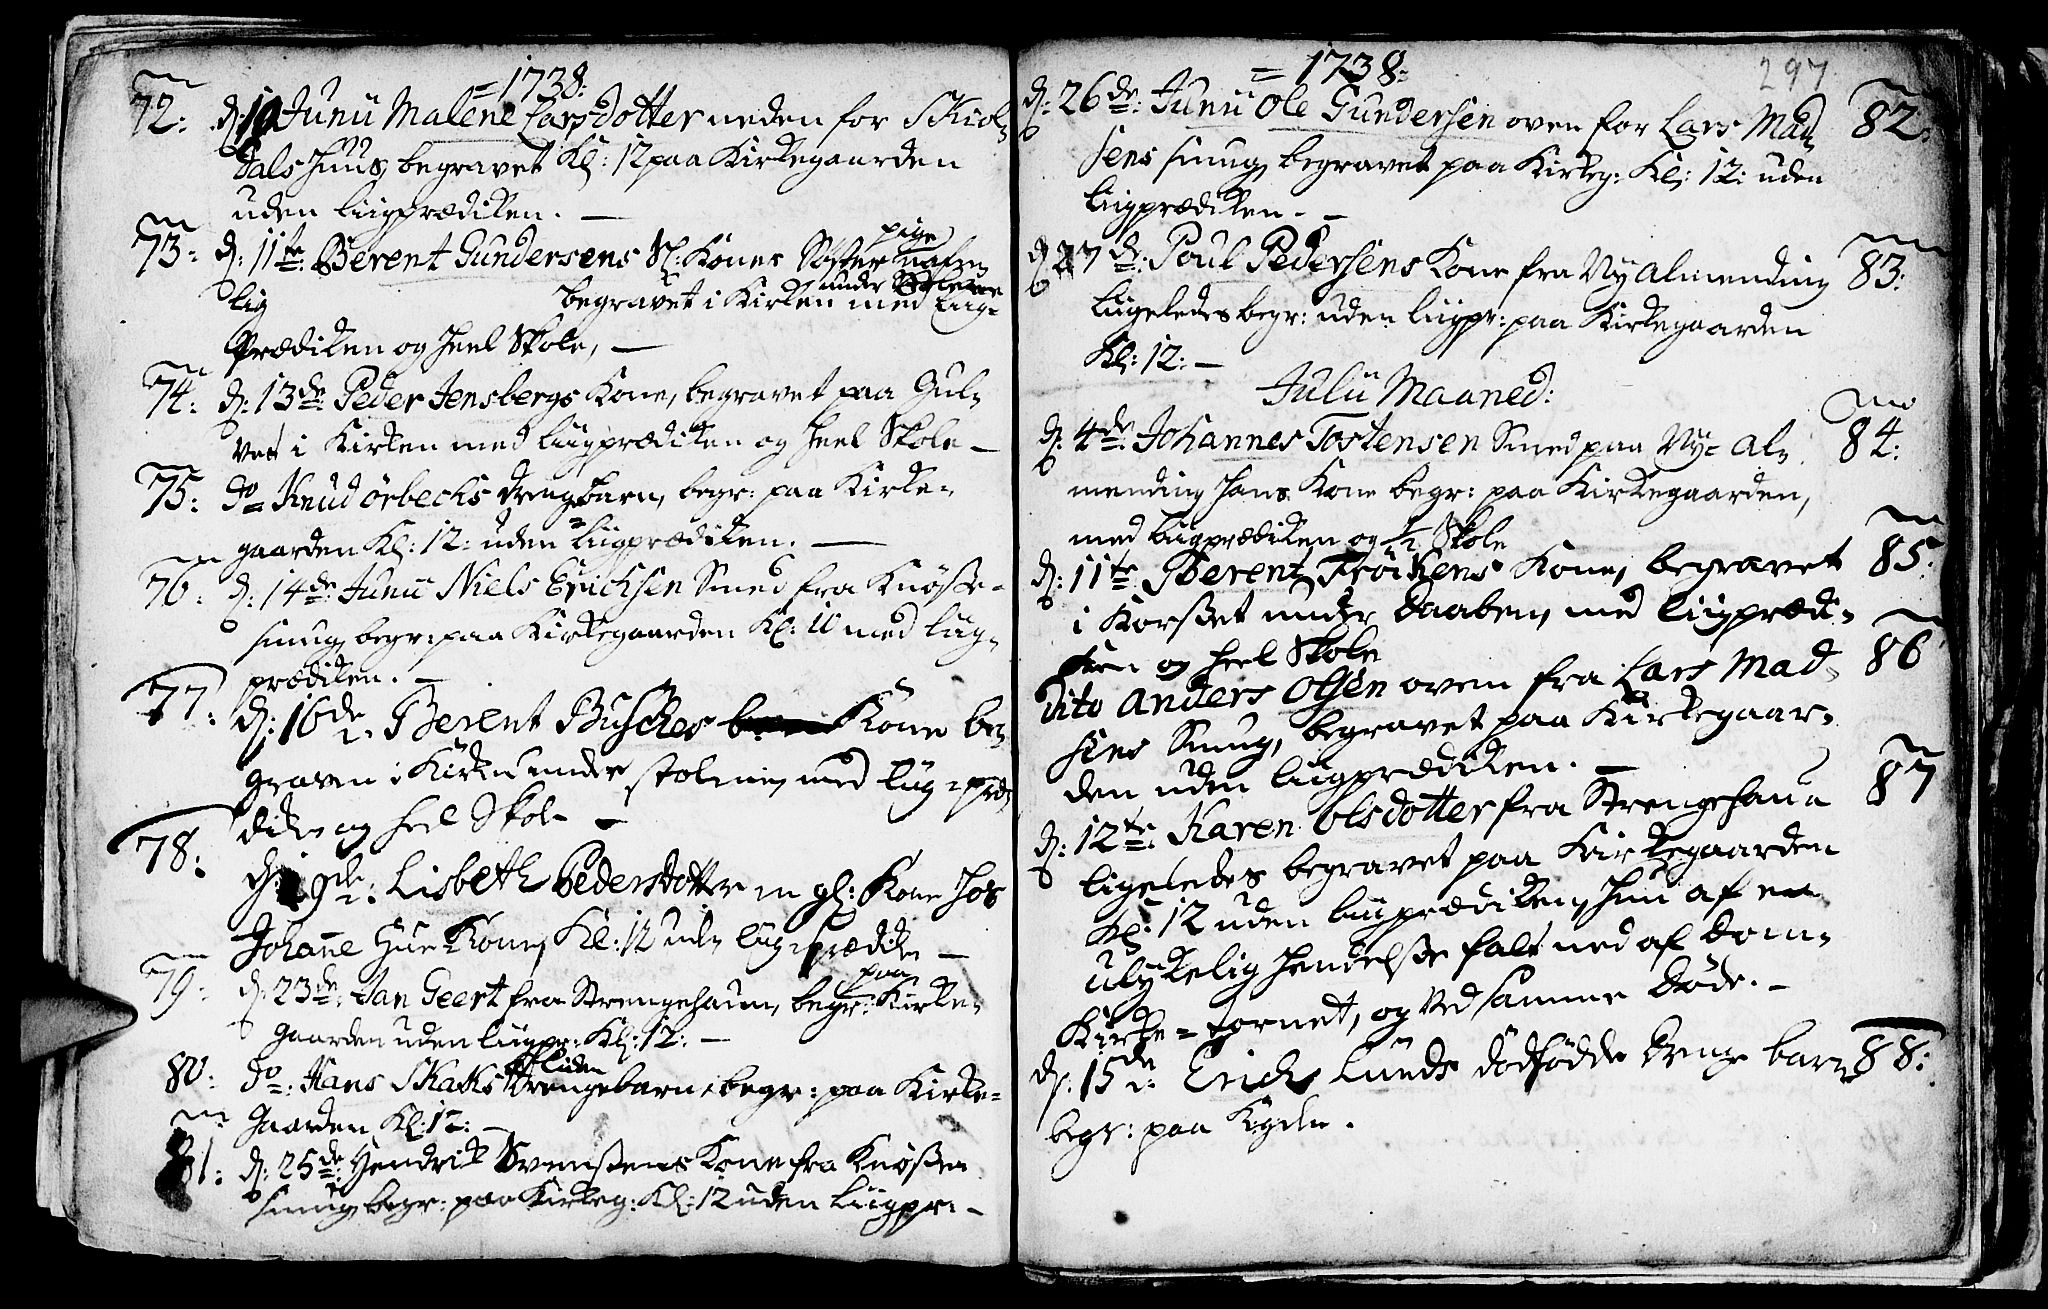 = 1738:
72: d: 10 Junii Malene Larsdotter neden for Skiol-
dals Huus, begravet Kl: 12 paa Kirkegaarden
uden liigprædiken. —
73: d: 11te: Berent Gundersens Sl: Kones Søster pige
lig begravet i Kirken under Stolene med Liig-
Prædiken og heel Skole, —
74: d: 13de: Peder Jensbergs Kone, begravet paa Gul-
vet i Kirken med liigprædiken og heel Skole —
75: do Knud Örbechs drengebarn, begr: paa Kirke-
gaarden Kl: 12: uden liigprædiken. —
76: d: 14de: Junii Niels Erichsen Smed fra Knøsse-
smug, begr: paa Kirkegaarden Kl: 10 med liig-
prædiken. —
77: d: 16de: Berent Busches Kone be-
graven i Kirken under stolene, med liig-præ-
diken og heel Skole —
78: d: 19de: Lisbeth Pedersdotter en gl: Kone hos
Johane Kone, Kl: 12 uden liigprædiken —
79: d: 23de: Jan Geert fra Strengehaun, begr: paa Kirke-
gaarden uden liigpr: Kl: 12: —
80: do: Hans Skaks liden drengebarn, begr: paa Kirke-
gaarden Kl: 12: —
81: d: 25de: Hendrik Svensens Kone fra Knøsse
smug, begr: paa Kirkeg: Kl: 12 uden liigpr: —
297
= 1738:
d: 26de: Junii Ole Gundersen oven for Lars Mad- 82:
sens smug, begravet paa Kirkeg: Kl: 12: uden
liigprædiken. —
d: 27de: Poul Pedersens Kone fra Ny Almending 83:
liigeledes begr: uden liigpr: paa Kirkegaarden
Kl: 12: —
Julii Maaned:
d: 4de: Johannes Tostensen Smed paa Ny= Al- 84:
mending hans Kone begr: paa Kirkegaarden,
med liigprædiken og 1/2 Skole
d: 11te: Berent Fröchens Kone, begravet 85:
i Korsset under Daaben, med liigprædi-
ken og heel Skole
Dito Anders Olsen oven fra Lars Mad- 86
sens Smug, begravet paa Kirkegaar-
den uden liigprædiken. —
d: 12te: Karen Olsdotter fra Strengehaun 87
ligeledes begravet paa Kirkegaarden
Kl: 12 uden liigprædiken, hun af en
ulykkelig hendelsse falt ned af Dom-
Kirke=tornet, og ved samme døde. —
d: 15de: Erich Lunds dødfødde drenge barn 88:
begr: paa Kgden.